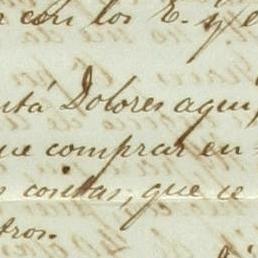 con los E. y e
ntá Dolores aqui,
ue comprar en-
s cositas, que ce
tros.